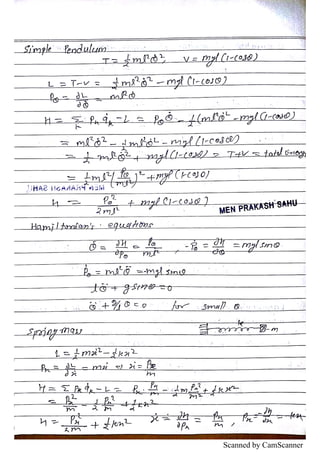 Simple Pendulum
T = ½ml²θ̇², V = mgl(1-cosθ)
L = T-V = ½ml²θ̇² - mgl(1-cosθ)
Pθ = ∂L/∂θ̇ = ml²θ̇
H = Σ Pₖ q̇ₖ - L = Pθ θ̇ - (½ml²θ̇² - mgl(1-cosθ)
= ml²θ̇² - ½ml²θ̇² - mgl(1-cosθ)
= ½ml²θ̇² + mgl(1-cosθ) = T+V = total energy
= ½ml²(Pθ/ml²)² + mgl(1-cosθ)
H = Pθ²/2ml² + mgl(1-cosθ)
MEN PRAKASH SAHU
Hamiltonian's equations
θ̇ = ∂H/∂Pθ = Pθ/ml², -Ṗθ = ∂H/∂θ = mgl sinθ
Ṗθ = ml²θ̈ = -mgl sinθ
lθ̈ + g sinθ = 0
θ̈ + g/l θ = 0 for small θ
Spring mass
m
L = ½mẋ² - ½kx²
Pₓ = ∂L/∂ẋ = mẋ ⇒ ẋ = Pₓ/m
H = Σ Pₖ q̇ₖ - L = Pₓ · Pₓ/m - ½m Pₓ²/m² + ½kx²
= Pₓ²/m - ½ Pₓ²/m + ½kx²
H = Pₓ²/2m + ½kx² ẋ = ∂H/∂Pₓ = Pₓ/m, Ṗₓ = -∂H/∂x = -kx
Scanned by CamScanner